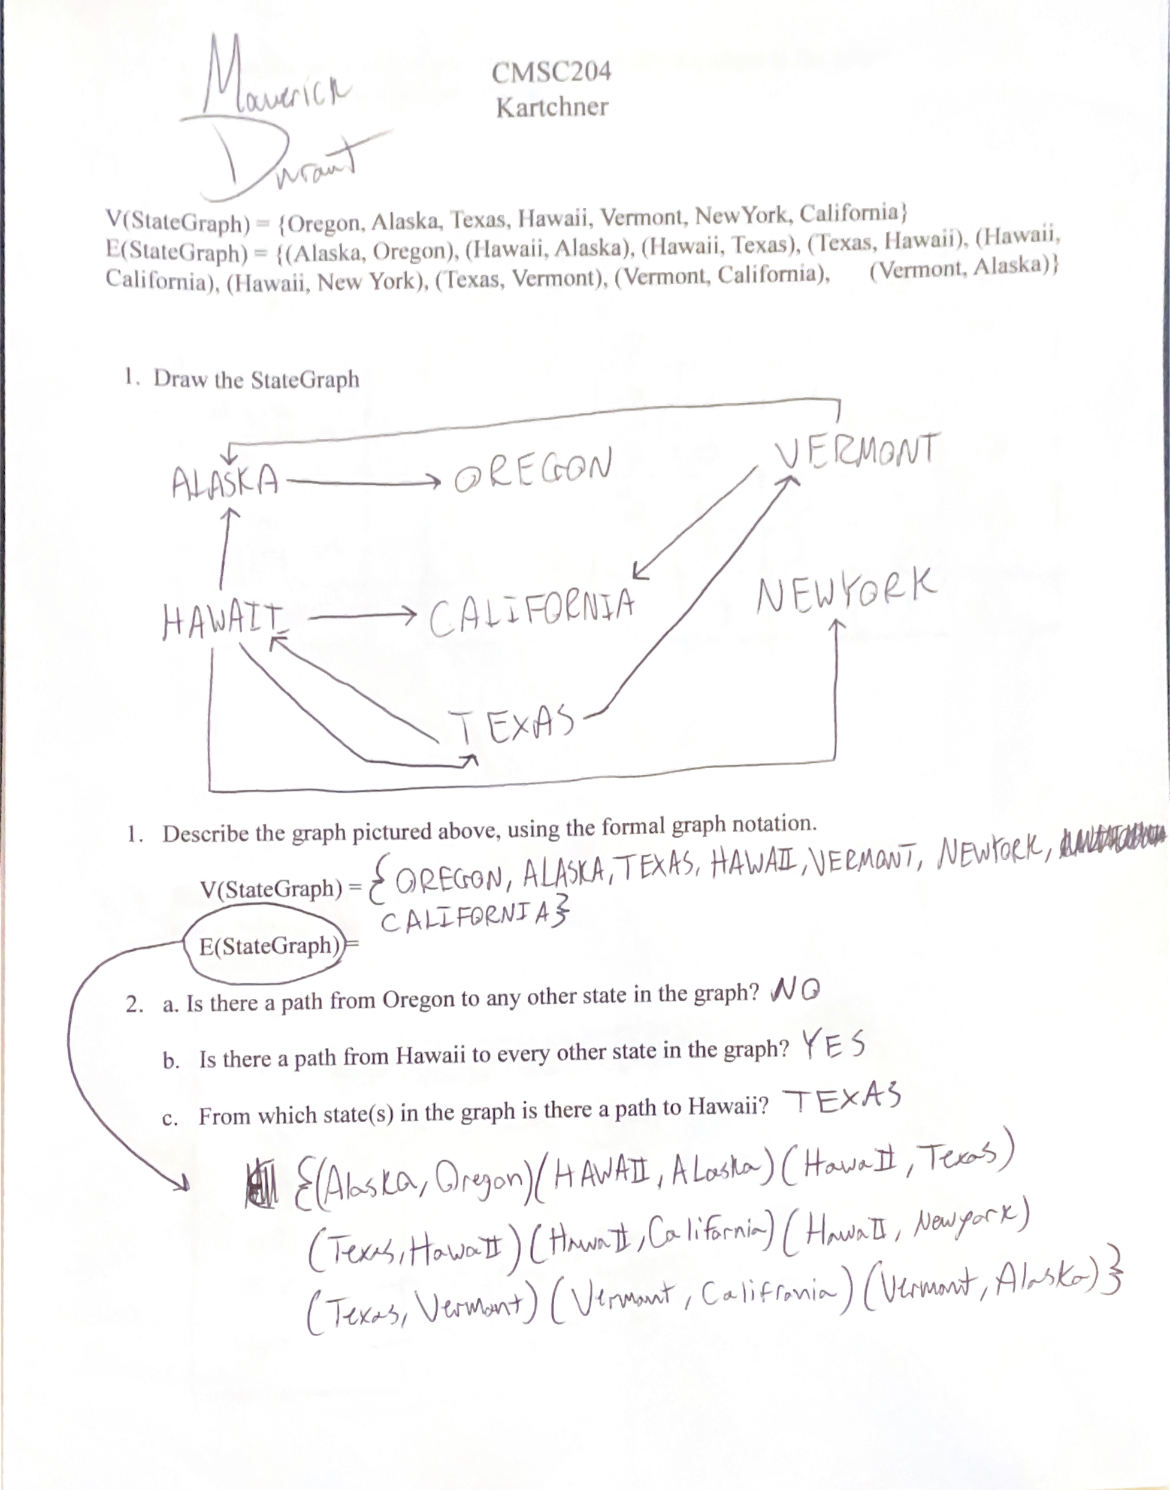 Maverick
Durant
CMSC204
Kartchner
V(StateGraph) = {Oregon, Alaska, Texas, Hawaii, Vermont, NewYork, California}
E(StateGraph) = {(Alaska, Oregon), (Hawaii, Alaska), (Hawaii, Texas), (Texas, Hawaii), (Hawaii,
California), (Hawaii, New York), (Texas, Vermont), (Vermont, California), (Vermont, Alaska)}
1. Draw the StateGraph
ALASKA OREGON VERMONT
HAWAII CALIFORNIA NEWYORK
TEXAS
1. Describe the graph pictured above, using the formal graph notation.
V(StateGraph) = { OREGON, ALASKA, TEXAS, HAWAII, VERMONT, NEWYORK,
CALIFORNIA}
E(StateGraph)=
2. a. Is there a path from Oregon to any other state in the graph? NO
b. Is there a path from Hawaii to every other state in the graph? YES
c. From which state(s) in the graph is there a path to Hawaii? TEXAS
{(Alaska, Oregon)(HAWAII, ALaska)(HawaII, Texas)
(Texas, HawaII)(HawaII, California)(HawaII, Newyork)
(Texas, Vermont)(Vermont, Califronia)(Vermont, Alaska)}